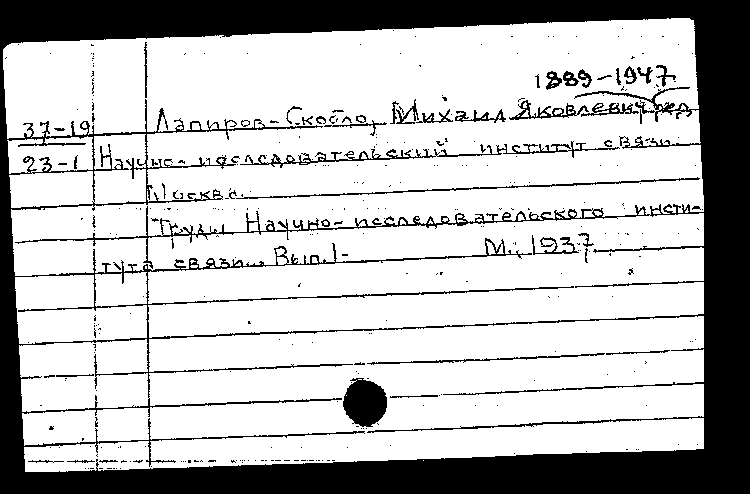 1889-1947
37-19 Лапиров-Скобло, Михаил Яковлевич, ред.
23-1 Научно-исследовательский институт связи.
Москва.
Труды Научно-исследовательского инсти-
тута связи... Вып.1-   М., 1937.